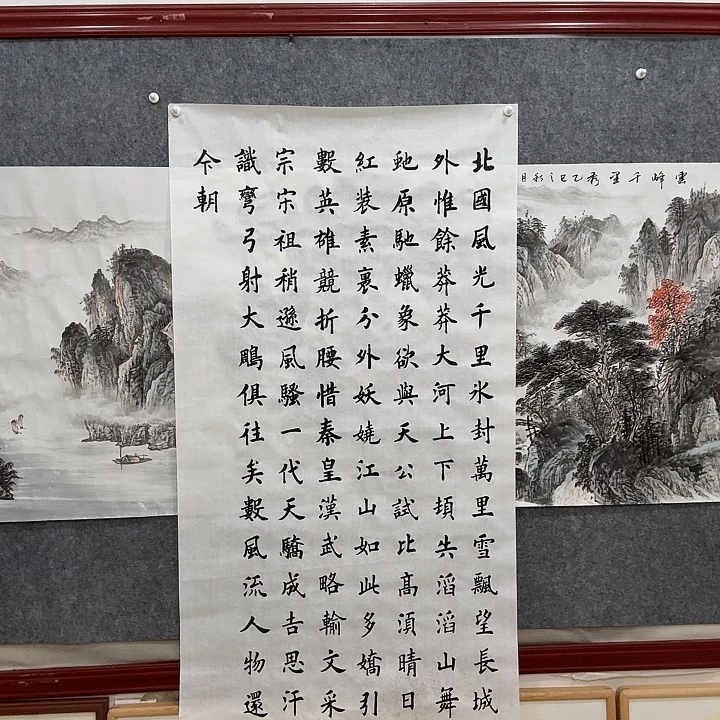 北國風光千里氷封萬里雪飄望長城
外惟餘莽莽大河上下頓失滔滔山舞
虵原馳蠟象欲與天公試比高湏晴日
紅装素裹分外妖嬈江山如此多嬌引
數英雄競折腰惜秦皇漢武略輸文采
宗宋祖稍遜風騷一代天驕成吉思汗
識彎弓射大鵰俱往矣數風流人物還
今朝
雲峰千里秀乙巳秋月